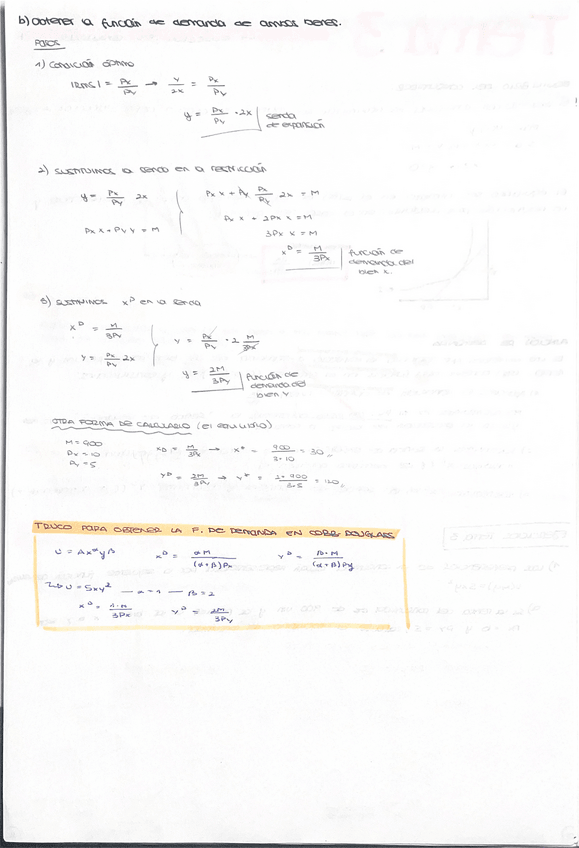 b) Obtener la función de demanda de ambos bienes.
PASOS
1) CONDICIÓN ÓPTIMO
|RMS| = Px/Py → y/2x = Px/Py
y = Px/Py · 2x senda de expansión
2) SUSTITUIMOS la senda en la restricción
y = Px/Py 2x
Px x + Py y = M
Px x + Py Px/Py 2x = M
Px x + 2Px x = M
3Px x = M
xᴰ = M/3Px función de demanda del bien x.
3) SUSTITUIMOS xᴰ en la senda
xᴰ = M/3Px
y = Px/Py 2x
y = Px/Py · 2 M/3Px
y = 2M/3Py función de demanda del bien y
OTRA FORMA DE CALCULARLO (el equilibrio)
M = 900
Px = 10
Py = 5
xᴰ = M/3Px → x* = 900/3·10 = 30
yᴰ = 2M/3Py → y* = 2·900/3·5 = 120
TRUCO PARA OBTENER LA F. DE DEMANDA EN COBB DOUGLASS
U = Ax^α y^β xᴰ = αM/(α+β)Px yᴰ = β·M/(α+β)Py
U = 5xy² — α = 1 — β = 2
xᴰ = 1·M/3Px yᴰ = 2M/3Py